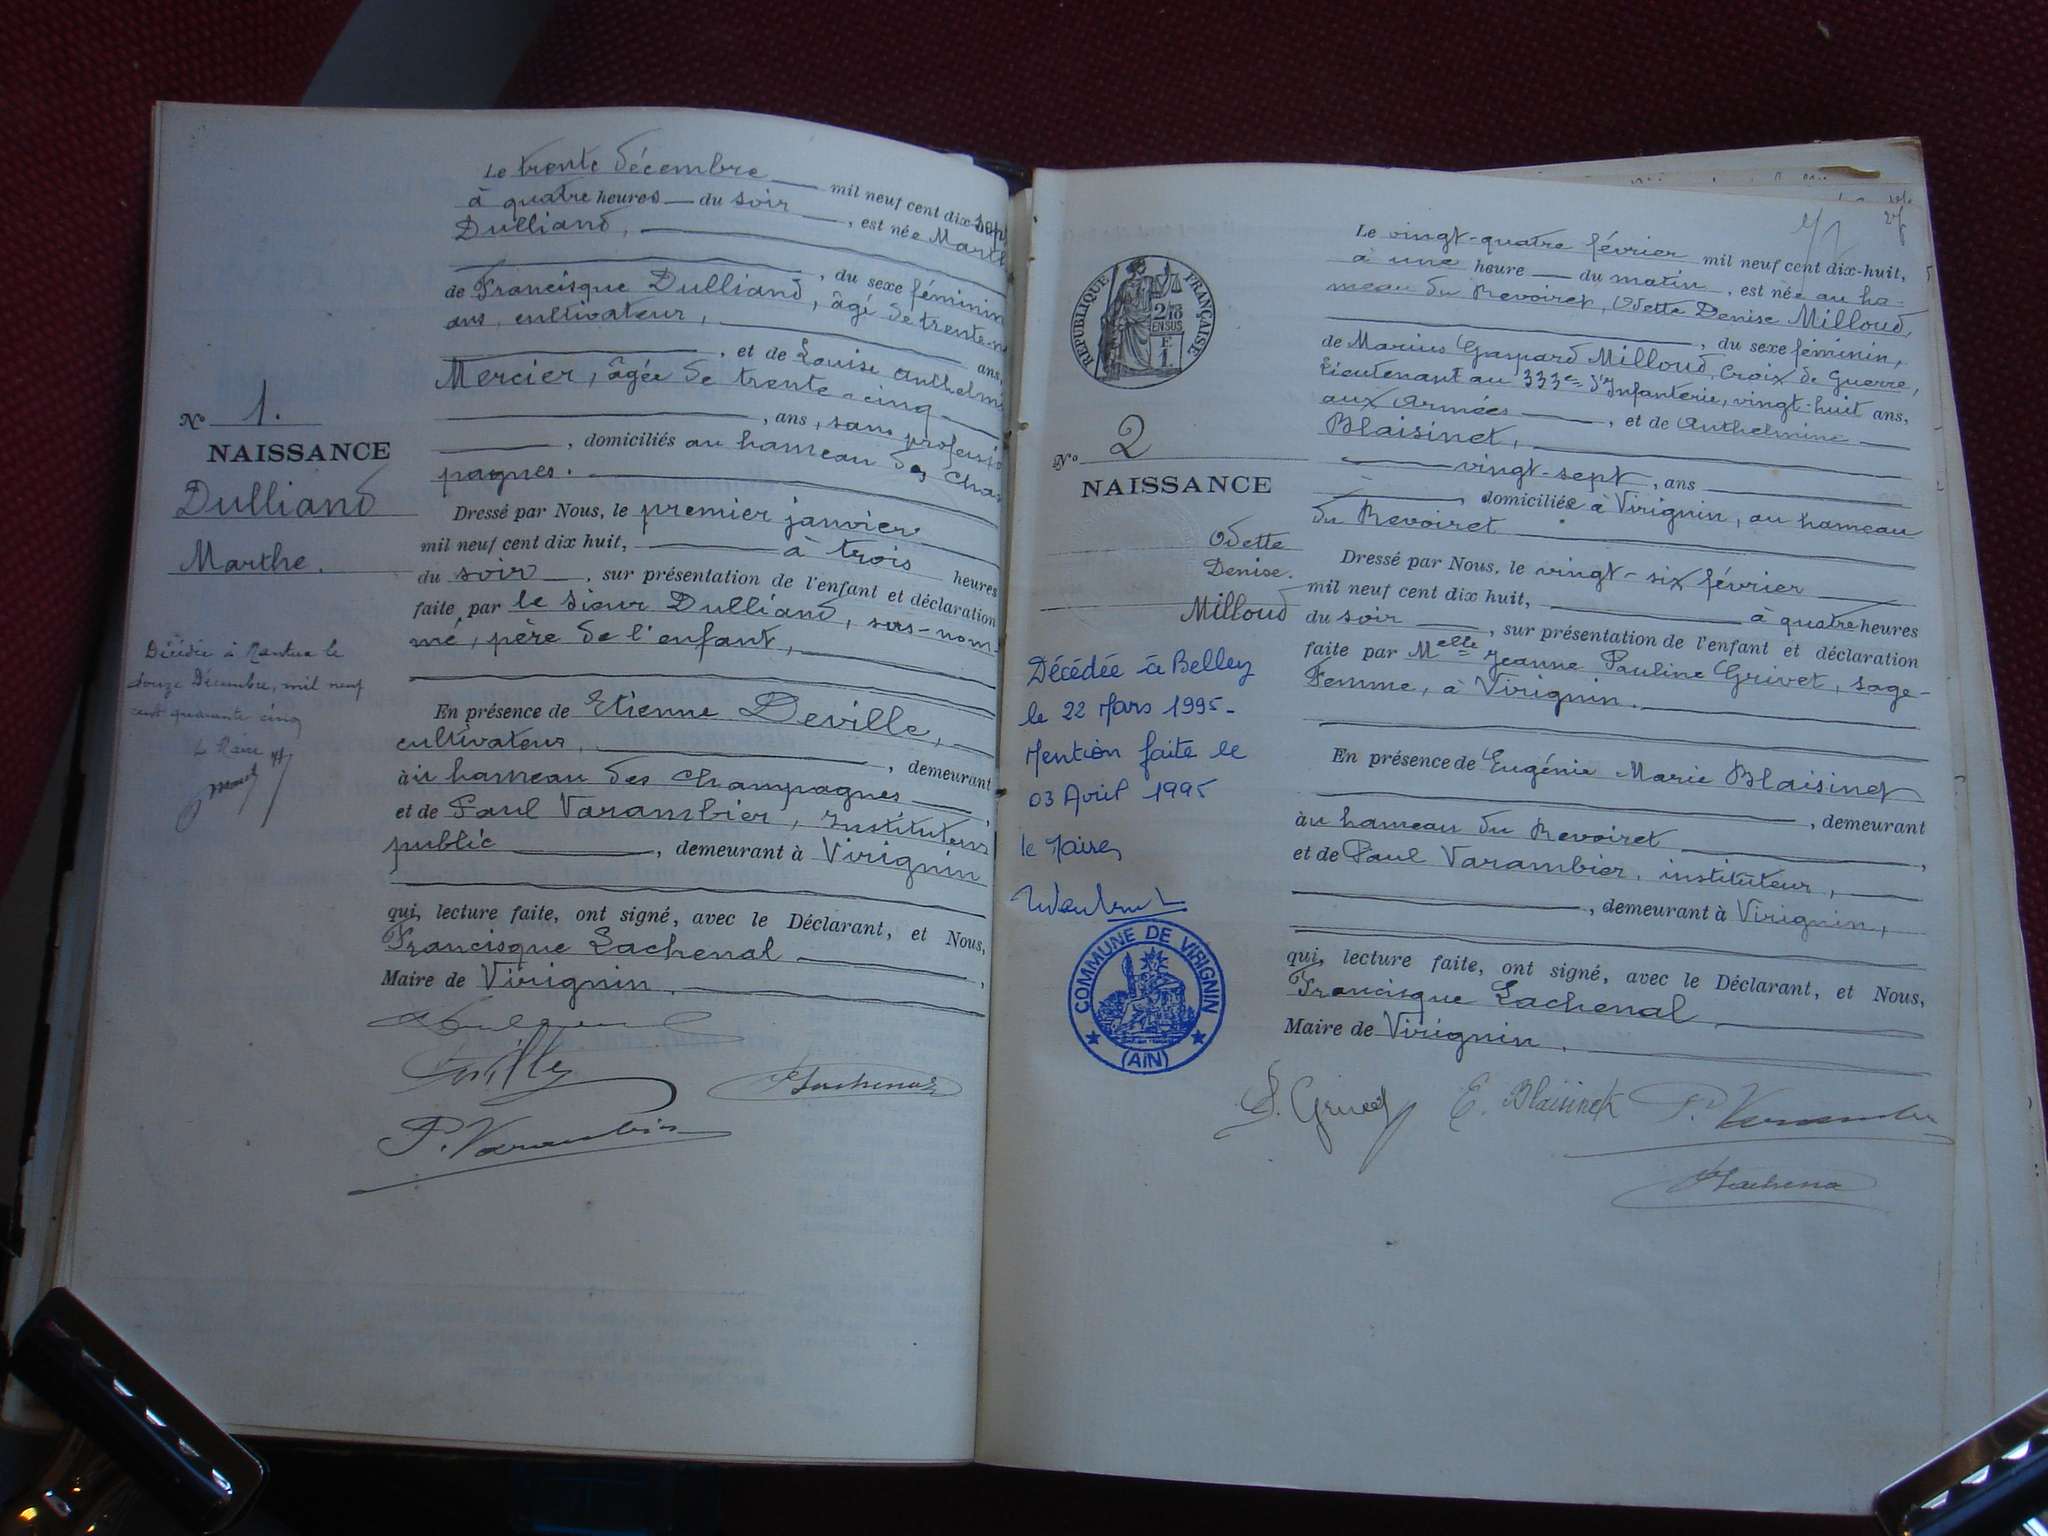 Le trente décembre mil neuf cent dix sept
à quatre heures du soir, est née Marthe
Dulliand,
, du sexe féminin
de Francisque Dulliand, âgé de trente-
ans, cultivateur, ans,
, et de Louise Anthelmi
Mercier, âgée de trente cinq
, ans, sans professio
, domiciliés au hameau des Cham
pagnes.
Dressé par Nous, le premier janvier
mil neuf cent dix huit, à trois heures
du soir, sur présentation de l'enfant et déclaration
faite par le sieur Dulliand, sus-nom-
mé, père de l'enfant,
En présence de Etienne Deville,
cultivateur, , demeurant
au hameau des Champagnes,
et de Paul Varambier, Instituteur
public, demeurant à Virignin
qui, lecture faite, ont signé, avec le Déclarant, et Nous,
Francisque Lachenal,
Maire de Virignin.
Deville
Lachenal
P. Varambier
N° 1.
NAISSANCE
Dulliand
Marthe.
Décédée à Nantua le
douze Décembre, mil neuf
cent quarante cinq
Le Maire
27
Le vingt-quatre février mil neuf cent dix-huit,
à une heure du matin, est née au ha-
meau du Revoiret, Odette Denise Milloud,
, du sexe féminin,
de Marius Gaspard Milloud, Croix de Guerre,
Lieutenant au 333e d'Infanterie, vingt-huit ans,
aux Armées, et de Anthelmine
Blaisinet,
vingt-sept, ans
, domiciliée à Virignin, au hameau
du Revoiret
Dressé par Nous, le vingt-six février
mil neuf cent dix huit, à quatre heures
du soir, sur présentation de l'enfant et déclaration
faite par Melle Jeanne Pauline Grivet, sage-
Femme, à Virignin.
En présence de Eugénie Marie Blaisinet
, demeurant
au hameau du Revoiret,
et de Paul Varambier, instituteur,
, demeurant à Virignin,
qui, lecture faite, ont signé, avec le Déclarant, et Nous,
Francisque Lachenal
Maire de Virignin.
Grivet E. Blaisinet P. Varambier
Lachenal
RÉPUBLIQUE FRANÇAISE
2/10
EN SUS
E
1
N° 2
NAISSANCE
Odette
Denise.
Milloud
Décédée à Belley
le 22 Mars 1995-
Mention faite le
03 Avril 1995
le Maire,
COMMUNE DE VIRIGNIN
(AIN)